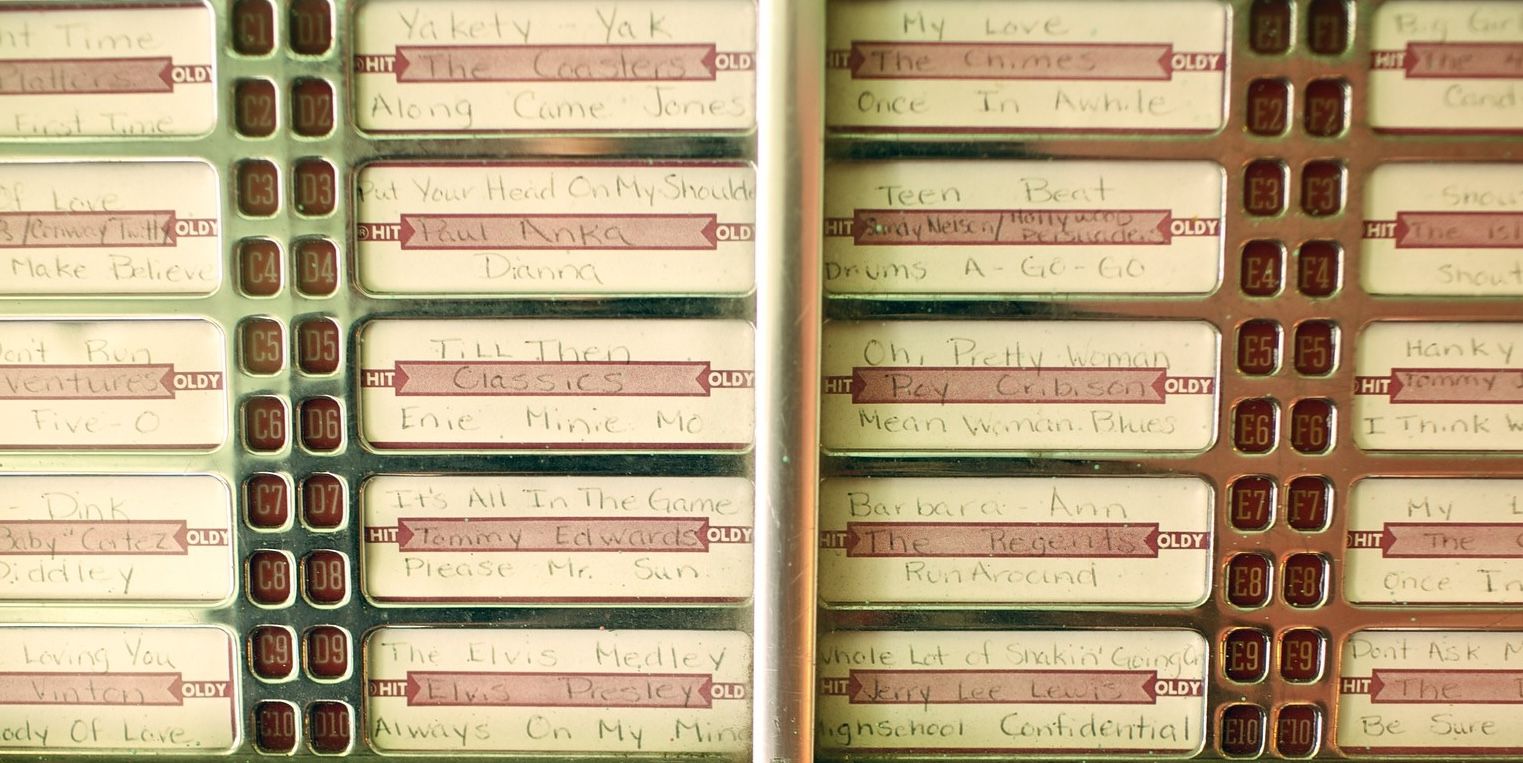 ht Time
HIT Platters OLDY
First Time
C1 D1
C2 D2
Yakety - Yak
HIT The Coasters OLD
Along Came Jones
Of Love
s/Conway Twitty OLDY
Make Believe
C3 D3
C4 D4
Put Your Head On My Shoulde
HIT Paul Anka OLD
Dianna
on't Run
Ventures OLDY
Five-O
C5 D5
C6 D6
Till Then
HIT Classics OLDY
Enie Minie Mo
- Dink
Baby" Cortez OLDY
Diddley
C7 D7
C8 D8
It's All In The Game
HIT Tommy Edwards OLDY
Please Mr. Sun
Loving You
Vinton OLDY
ody Of Love
C9 D9
C10 D10
The Elvis Medley
HIT Elvis Presley OLD
Always On My Mind
My Love
HIT The Chimes OLDY
Once In Awhile
E1 F1
E2 F2
Big Gir
HIT The 4
Cand
Teen Beat
HIT Sandy Nelson/Hollywood Persuaders OLDY
Drums A-GO-GO
E3 F3
E4 F4
Shou
HIT The Isl
Shout
Oh, Pretty Woman
HIT Roy Oribison OLDY
Mean Woman Blues
E5 F5
E6 F6
Hanky
HIT Tommy J
I Think W
Barbara-Ann
HIT The Regents OLDY
Run Around
E7 F7
E8 F8
My L
HIT The C
Once In
Whole Lot of Shakin' Going On
HIT Jerry Lee Lewis OLDY
ighschool Confidential
E9 F9
E10 F10
Dont Ask M
HIT The
Be Sure